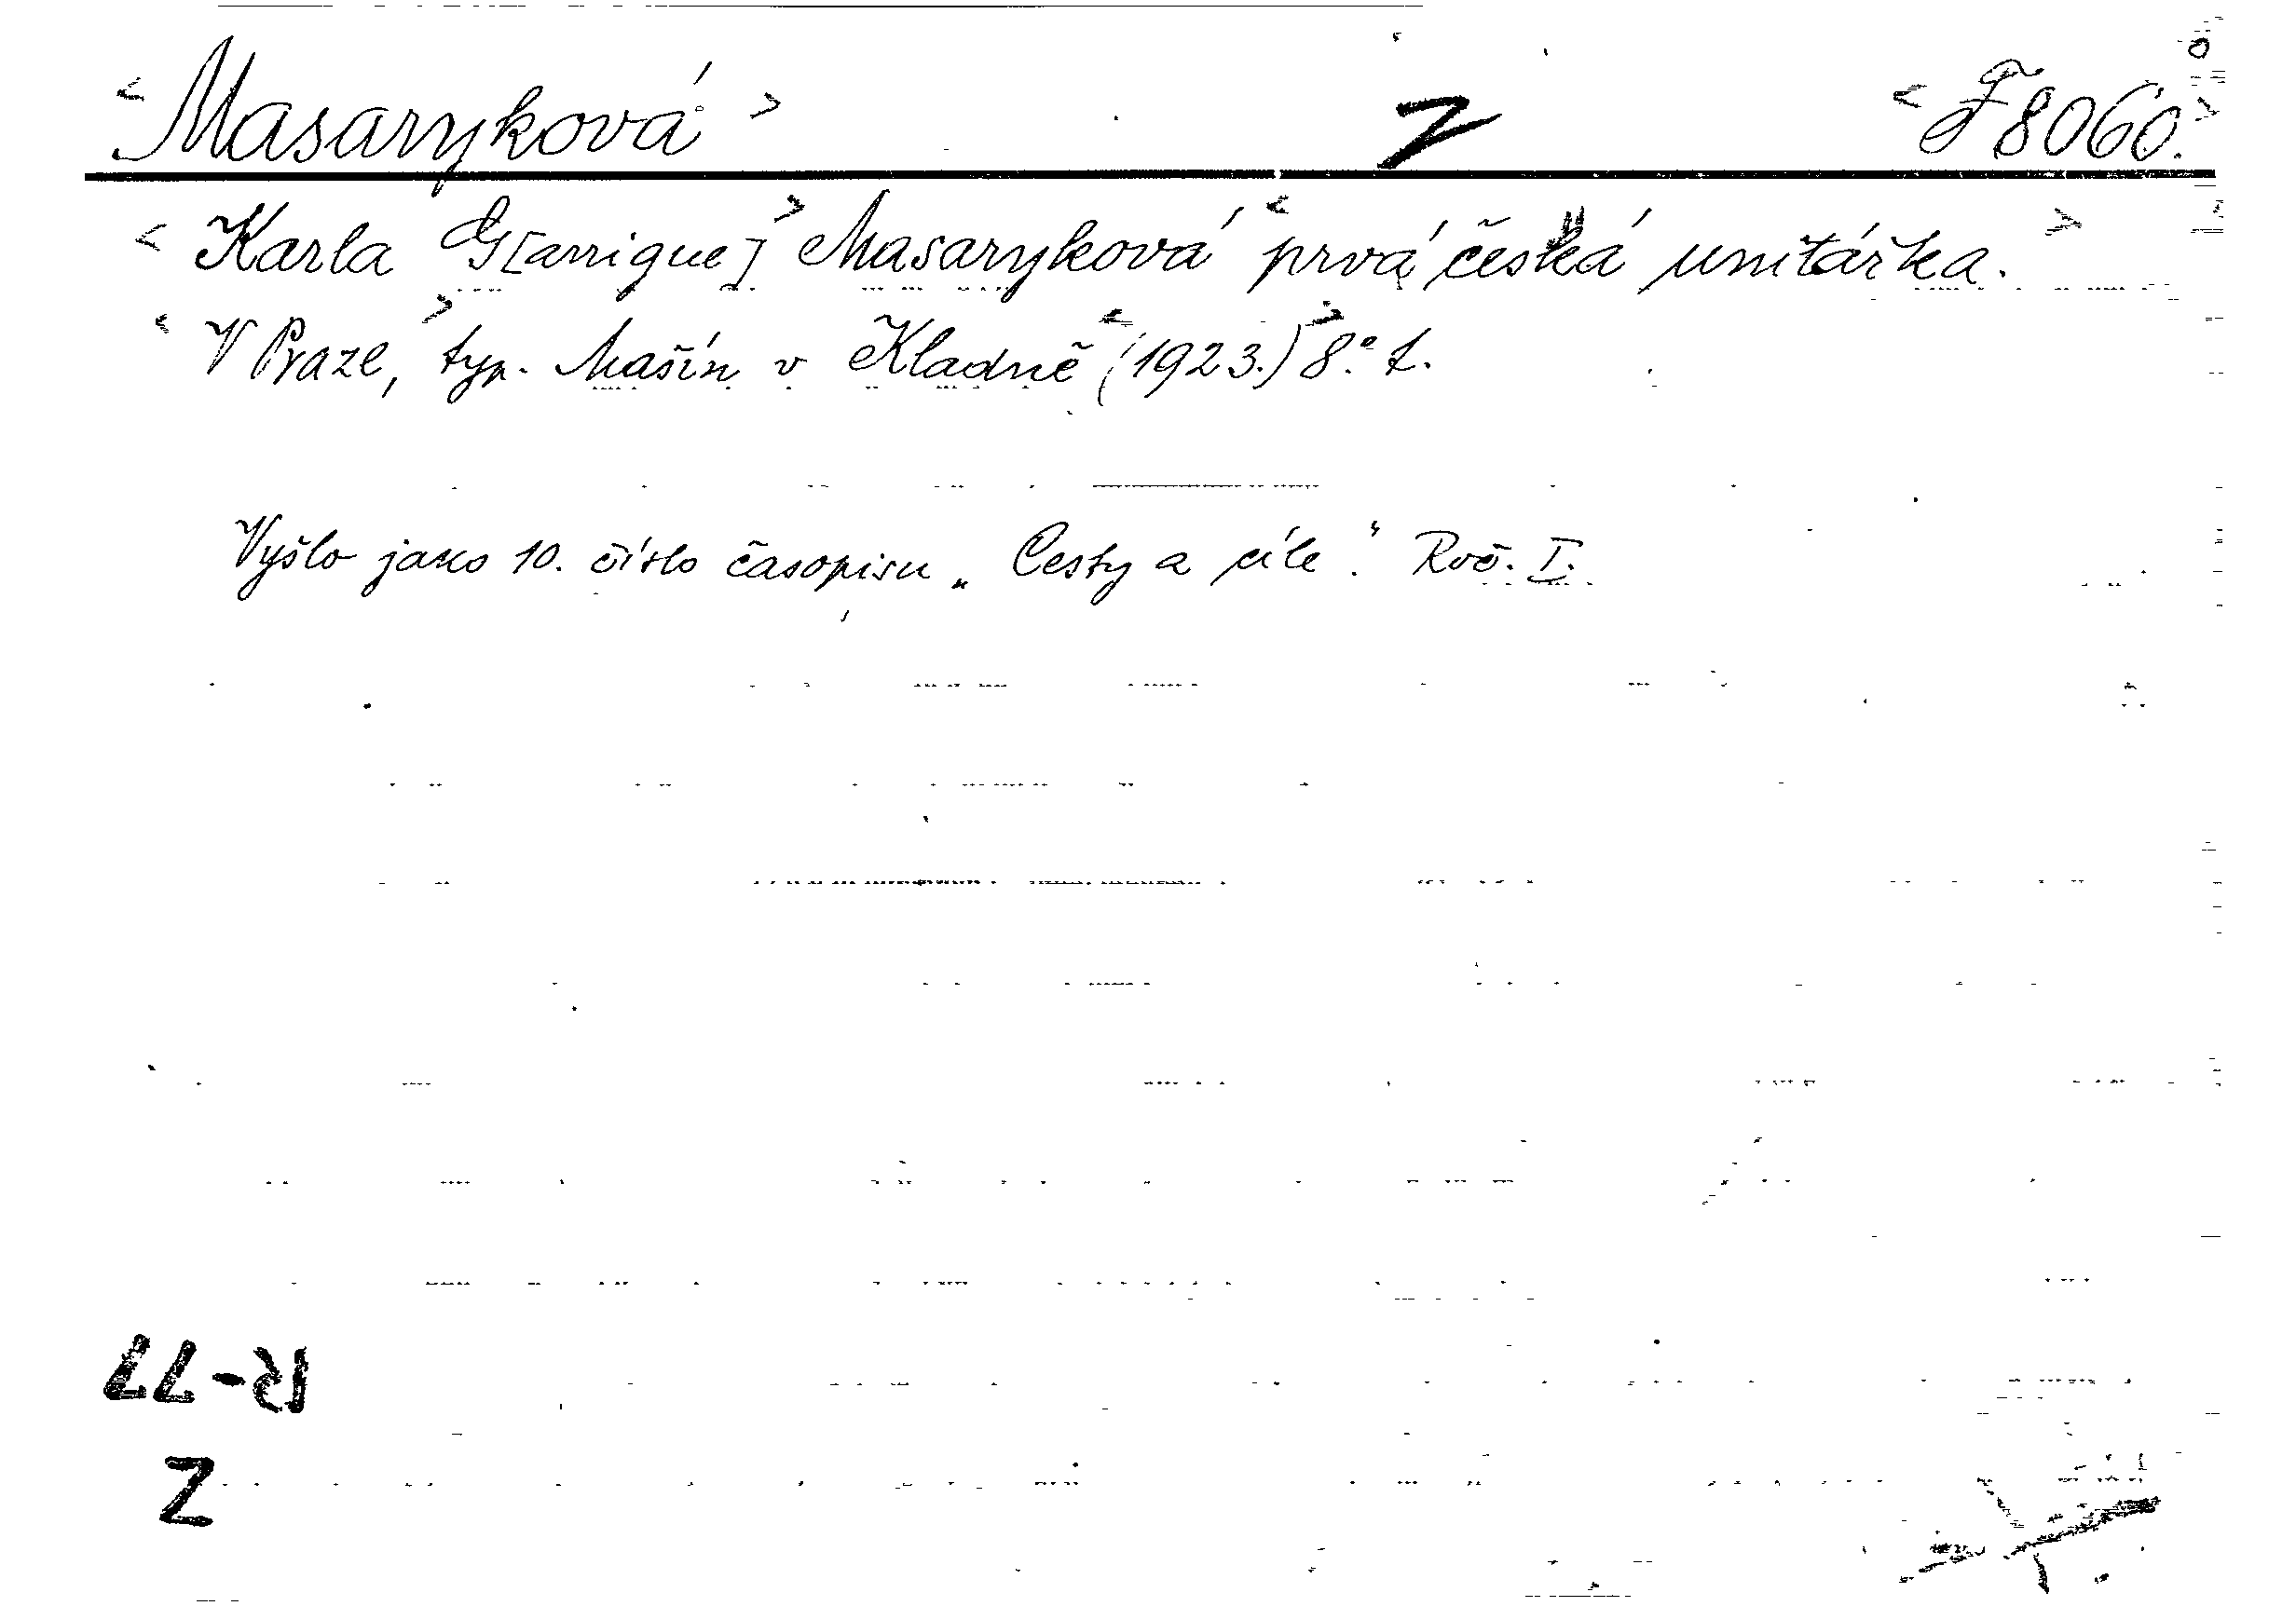 < Masaryková > Z < F 8060. >
< Karla G[arrigue] > Masaryková < prvá česká unitářka. >
< V Praze, > typ. Mašín v Kladně < (1923.) > 8° 1.
Vyšlo jako 10. číslo časopisu „Cesty a cíle“. Roč. I.
Z